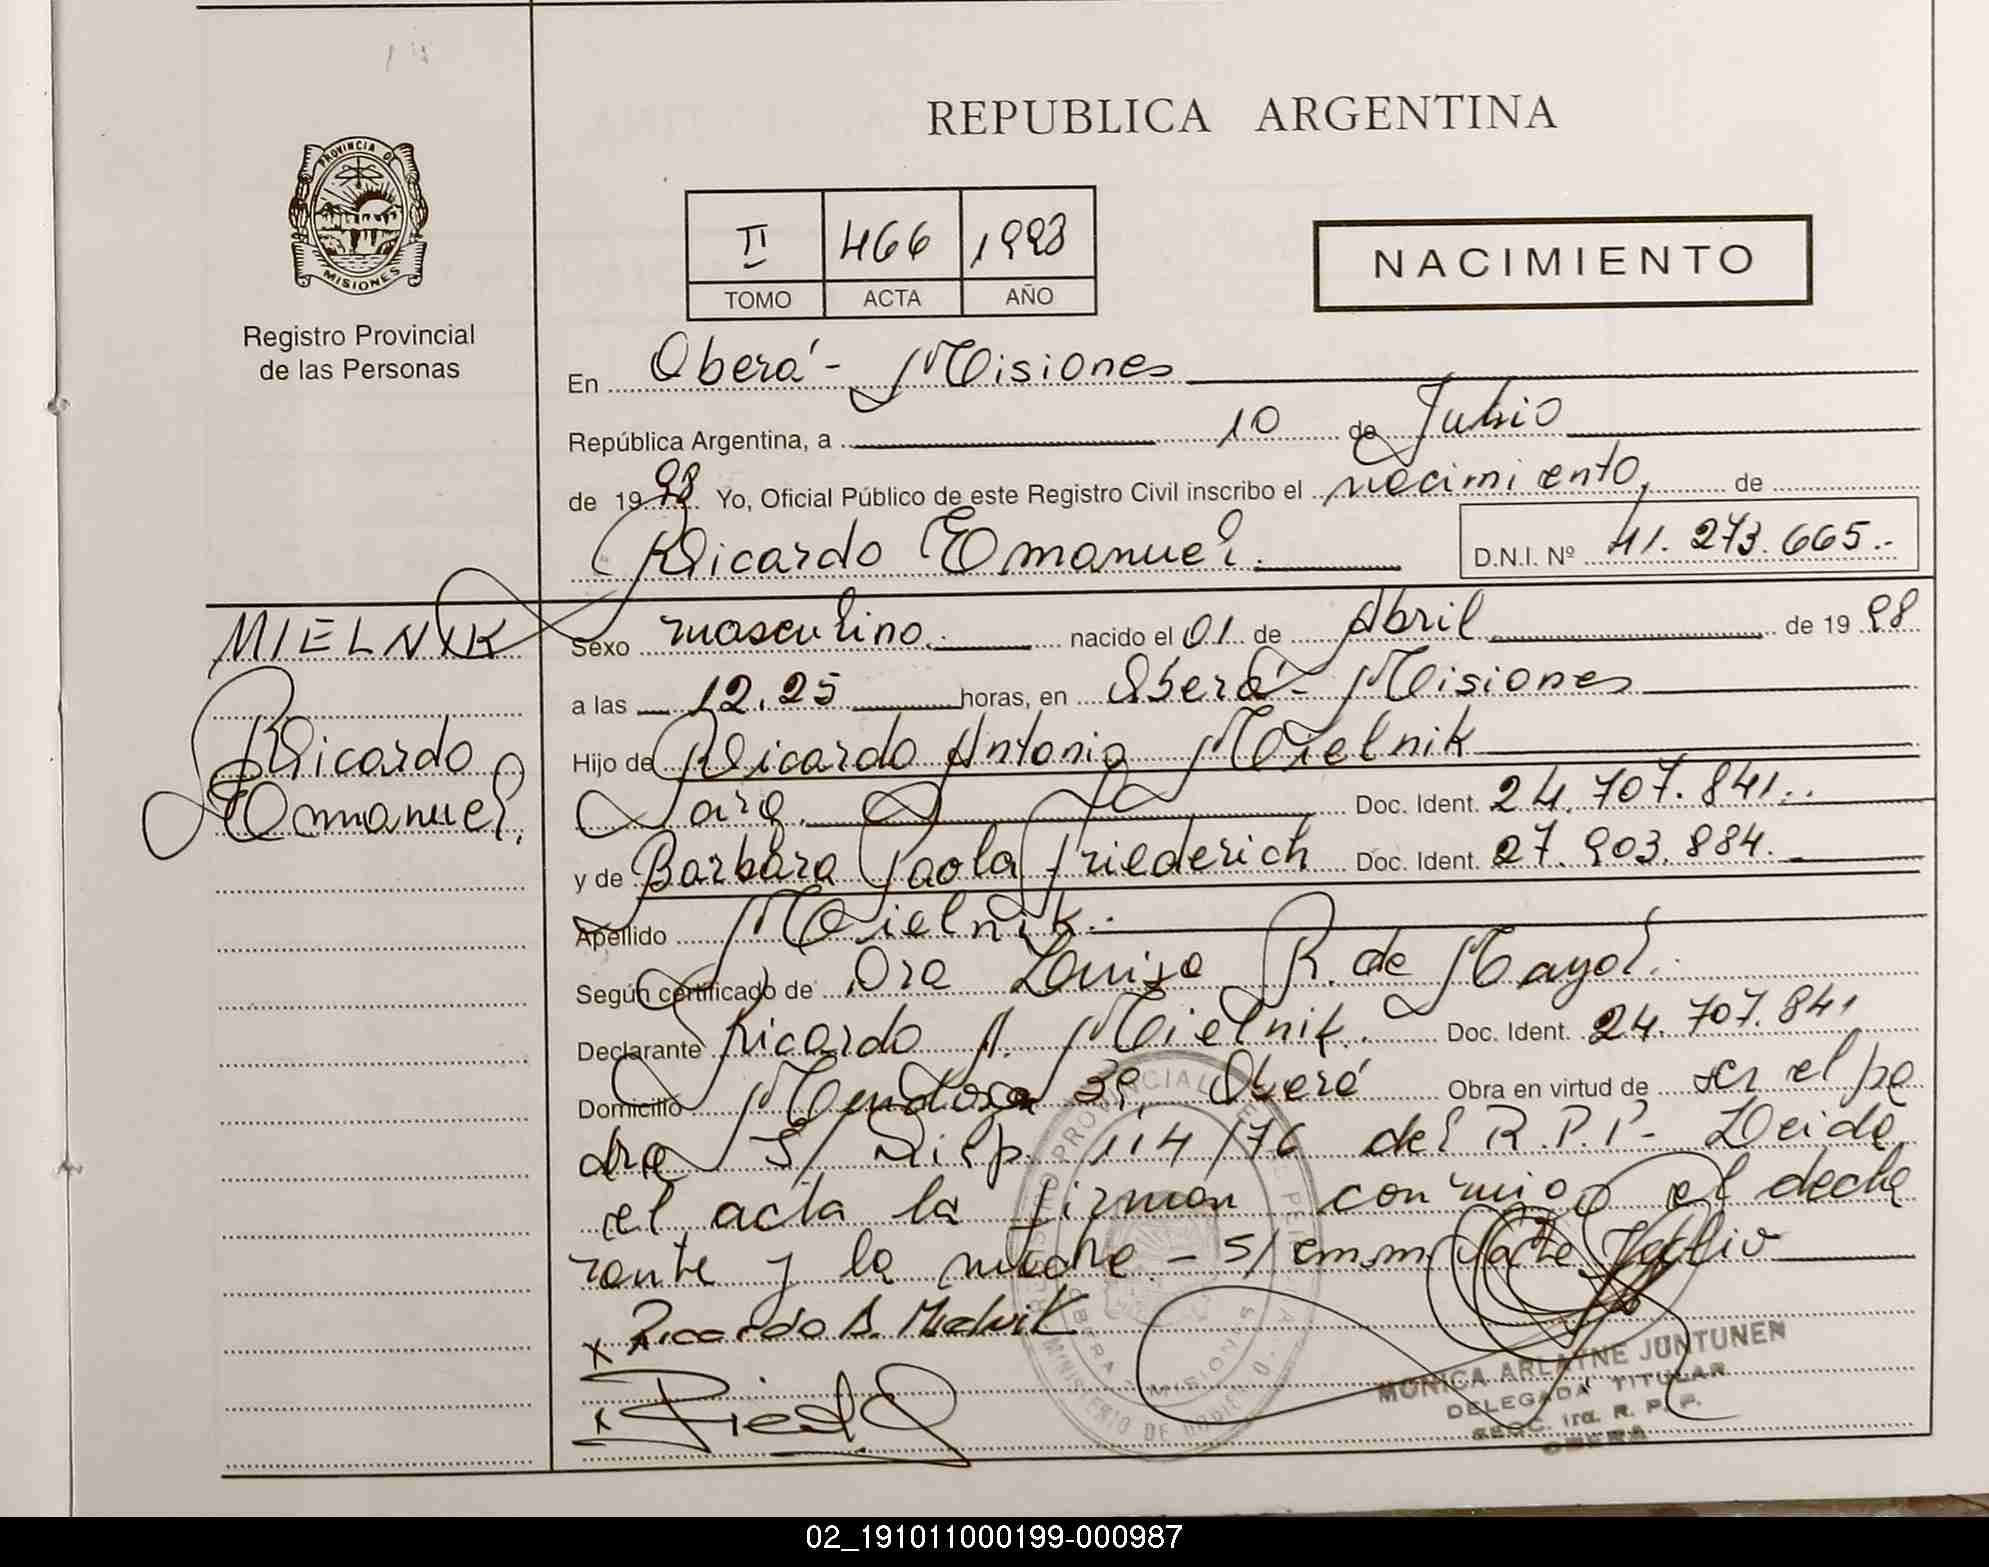 REPUBLICA ARGENTINA
PROVINCIA DE
MISIONES
Registro Provincial
de las Personas
II 466 1998
TOMO ACTA AÑO
NACIMIENTO
En Oberá - Misiones
República Argentina, a 10 de Julio
de 1998 Yo, Oficial Público de este Registro Civil inscribo el nacimiento, de
Ricardo Emanuel. D.N.I. Nº 41.273.665.-
MIELNIK
Ricardo
Emanuel.
Sexo masculino. nacido el 01 de Abril de 1998
a las 12.25 horas, en Oberá - Misiones
Hijo de Ricardo Antonio Mielnik
Doc. Ident. 24.707.841..
y de Barbara Paola Friederich Doc. Ident. 27.903.884.
Apellido Mielnik.
Según certificado de Dra Luisa R. de Mayol.
Declarante Ricardo A. Mielnik. Doc. Ident. 24.707.841
Domicilio Mendoza 39, Oberá Obra en virtud de ser el pa
dre S/ Disp. 114/76 del R.P.P. - Leida
el acta la firman conmigo el decla
rante y la madre - S/
x Ricardo A. Mielnik
x
MONICA ARLAYNE JUNTUNEN
DELEGADA TITULAR
SECC. 1ra. R. P. P.
OBERA
OBERA MISIONES
MINISTERIO DE GOBIERNO
02_191011000199-000987